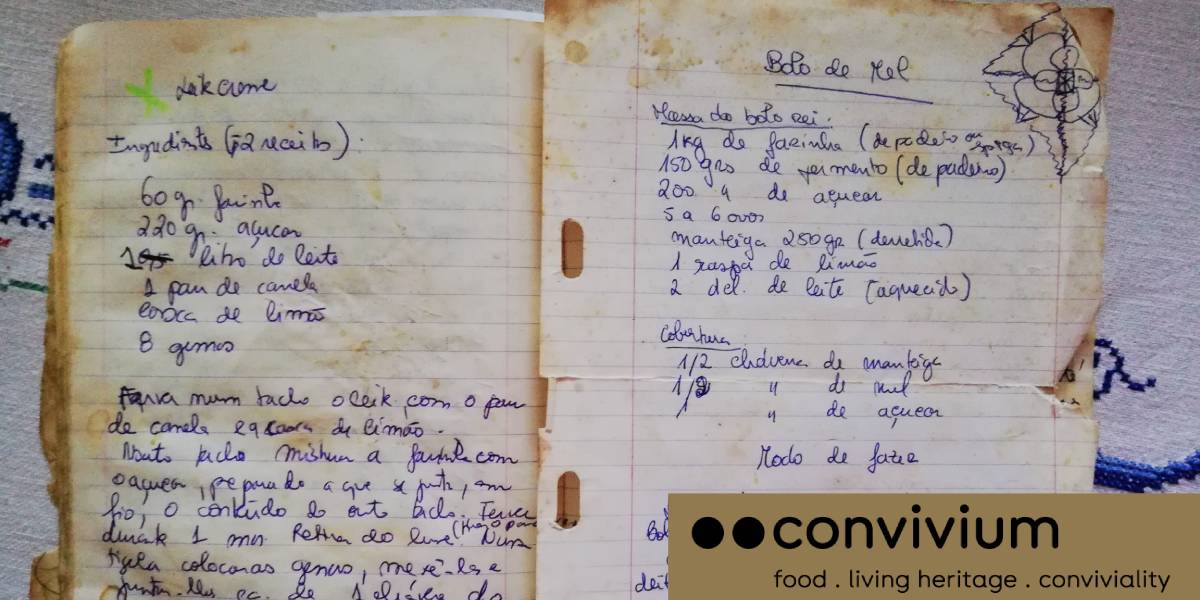 Leite creme
Ingredientes (p2 receitas).
60 gr. farinha
220 gr. açucar
1 litro de leite
1 pau de canela
casca de limão
8 gemas
Ferva num tacho o leite com o pau
de canela e a casca de limão.
Noutro tacho mistura a farinha com
o açucar, preparado a que se junta, em
fio, o conteúdo do outro tacho. Ferver
durante 1 min. Retira do lume. Numa
tigela colocar as gemas, mexê-las e
juntar-lhes de 1 chávena do
Bolo de Mel
Massa do bolo rei.
1kg de farinha (de padeiro ou espiga)
150 grs de fermento (de padeiro)
200 " de açucar
5 a 6 ovos
manteiga 250gr (derretida)
1 raspa de limão
2 del. de leite (aquecido)
Cobertura
1/2 chávena de manteiga
1/2 " de mel
1 " de açucar
Modo de fazer
convivium
food . living heritage . conviviality